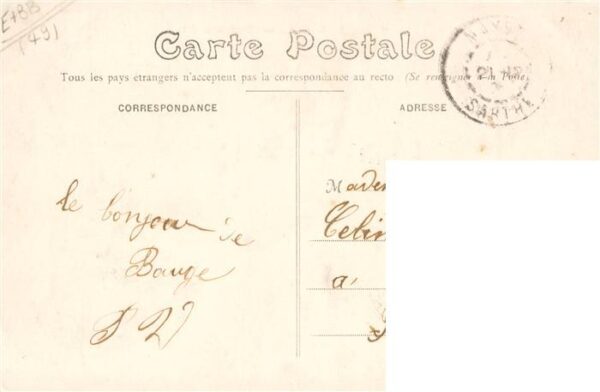 E788
(49)
Carte Postale
Tous les pays étrangers n'acceptent pas la correspondance au recto (Se renseigner à la Poste)
CORRESPONDANCE
ADRESSE
21
SARTHE
le bonjour de
Bauge
à